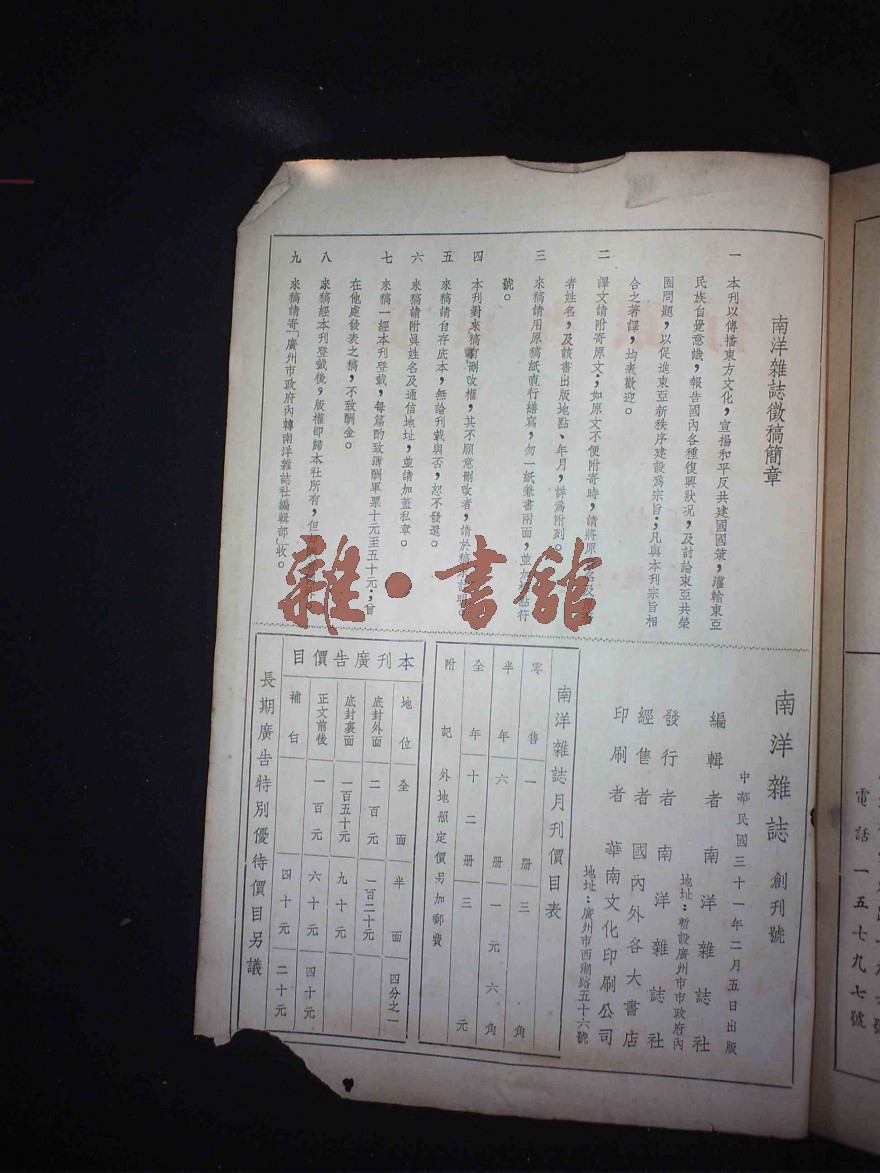 南洋雜誌徵稿簡章
一 本刊以傳播東方文化,宣揚和平反共建國國策,灌輸東亞
民族自覺意識,報告國內各種復興狀況,及討論東亞共榮
圈問題,以促進東亞新秩序建設爲宗旨;凡與本刊宗旨相
合之著譯,均表歡迎。
二 譯文請附寄原文;如原文不便附寄時,請將原
者姓名,及該書出版地點、年月,詳爲附列。
三 來稿請用原稿紙直行繕寫,勿一紙兼書兩面,並
符
號。
四 本刊對來稿有刪改權,其不願意刪改者,請於稿
五 來稿請自存底本,無論刊載與否,恕不發還。
六 來稿請附眞姓名及通信地址,並請加蓋私章。
七 來稿一經本刊登載,每篇酌致薄酬軍票十元至五十元;曾
在他處發表之稿,不致酬金。
八 來稿經本刊登載後,版權即歸本社所有,但
九 來稿請寄「廣州市政府內轉南洋雜誌社編輯部」收。
南洋雜誌 創刊號
中華民國三十一年二月五日出版
編輯者 南洋雜誌社
地址:暫設廣州市市政府內
發行者 南洋雜誌社
經售者 國內外各大書店
印刷者 華南文化印刷公司
地址:廣州市西湖路五十六號
南洋雜誌月刊價目表
零售 一册 三角
半年 六册 一元六角
全年 十二册 三元
附記 外地照定價另加郵費
本刊廣告價目
地位 全面 半面 四分之一
底封外面 二百元 一百二十元
底封裏面 一百五十元 九十元
正文前後 一百元 六十元 四十元
補白 四十元 二十元
長期廣告特別優待價目另議
電話一五七九七號
雜·書館